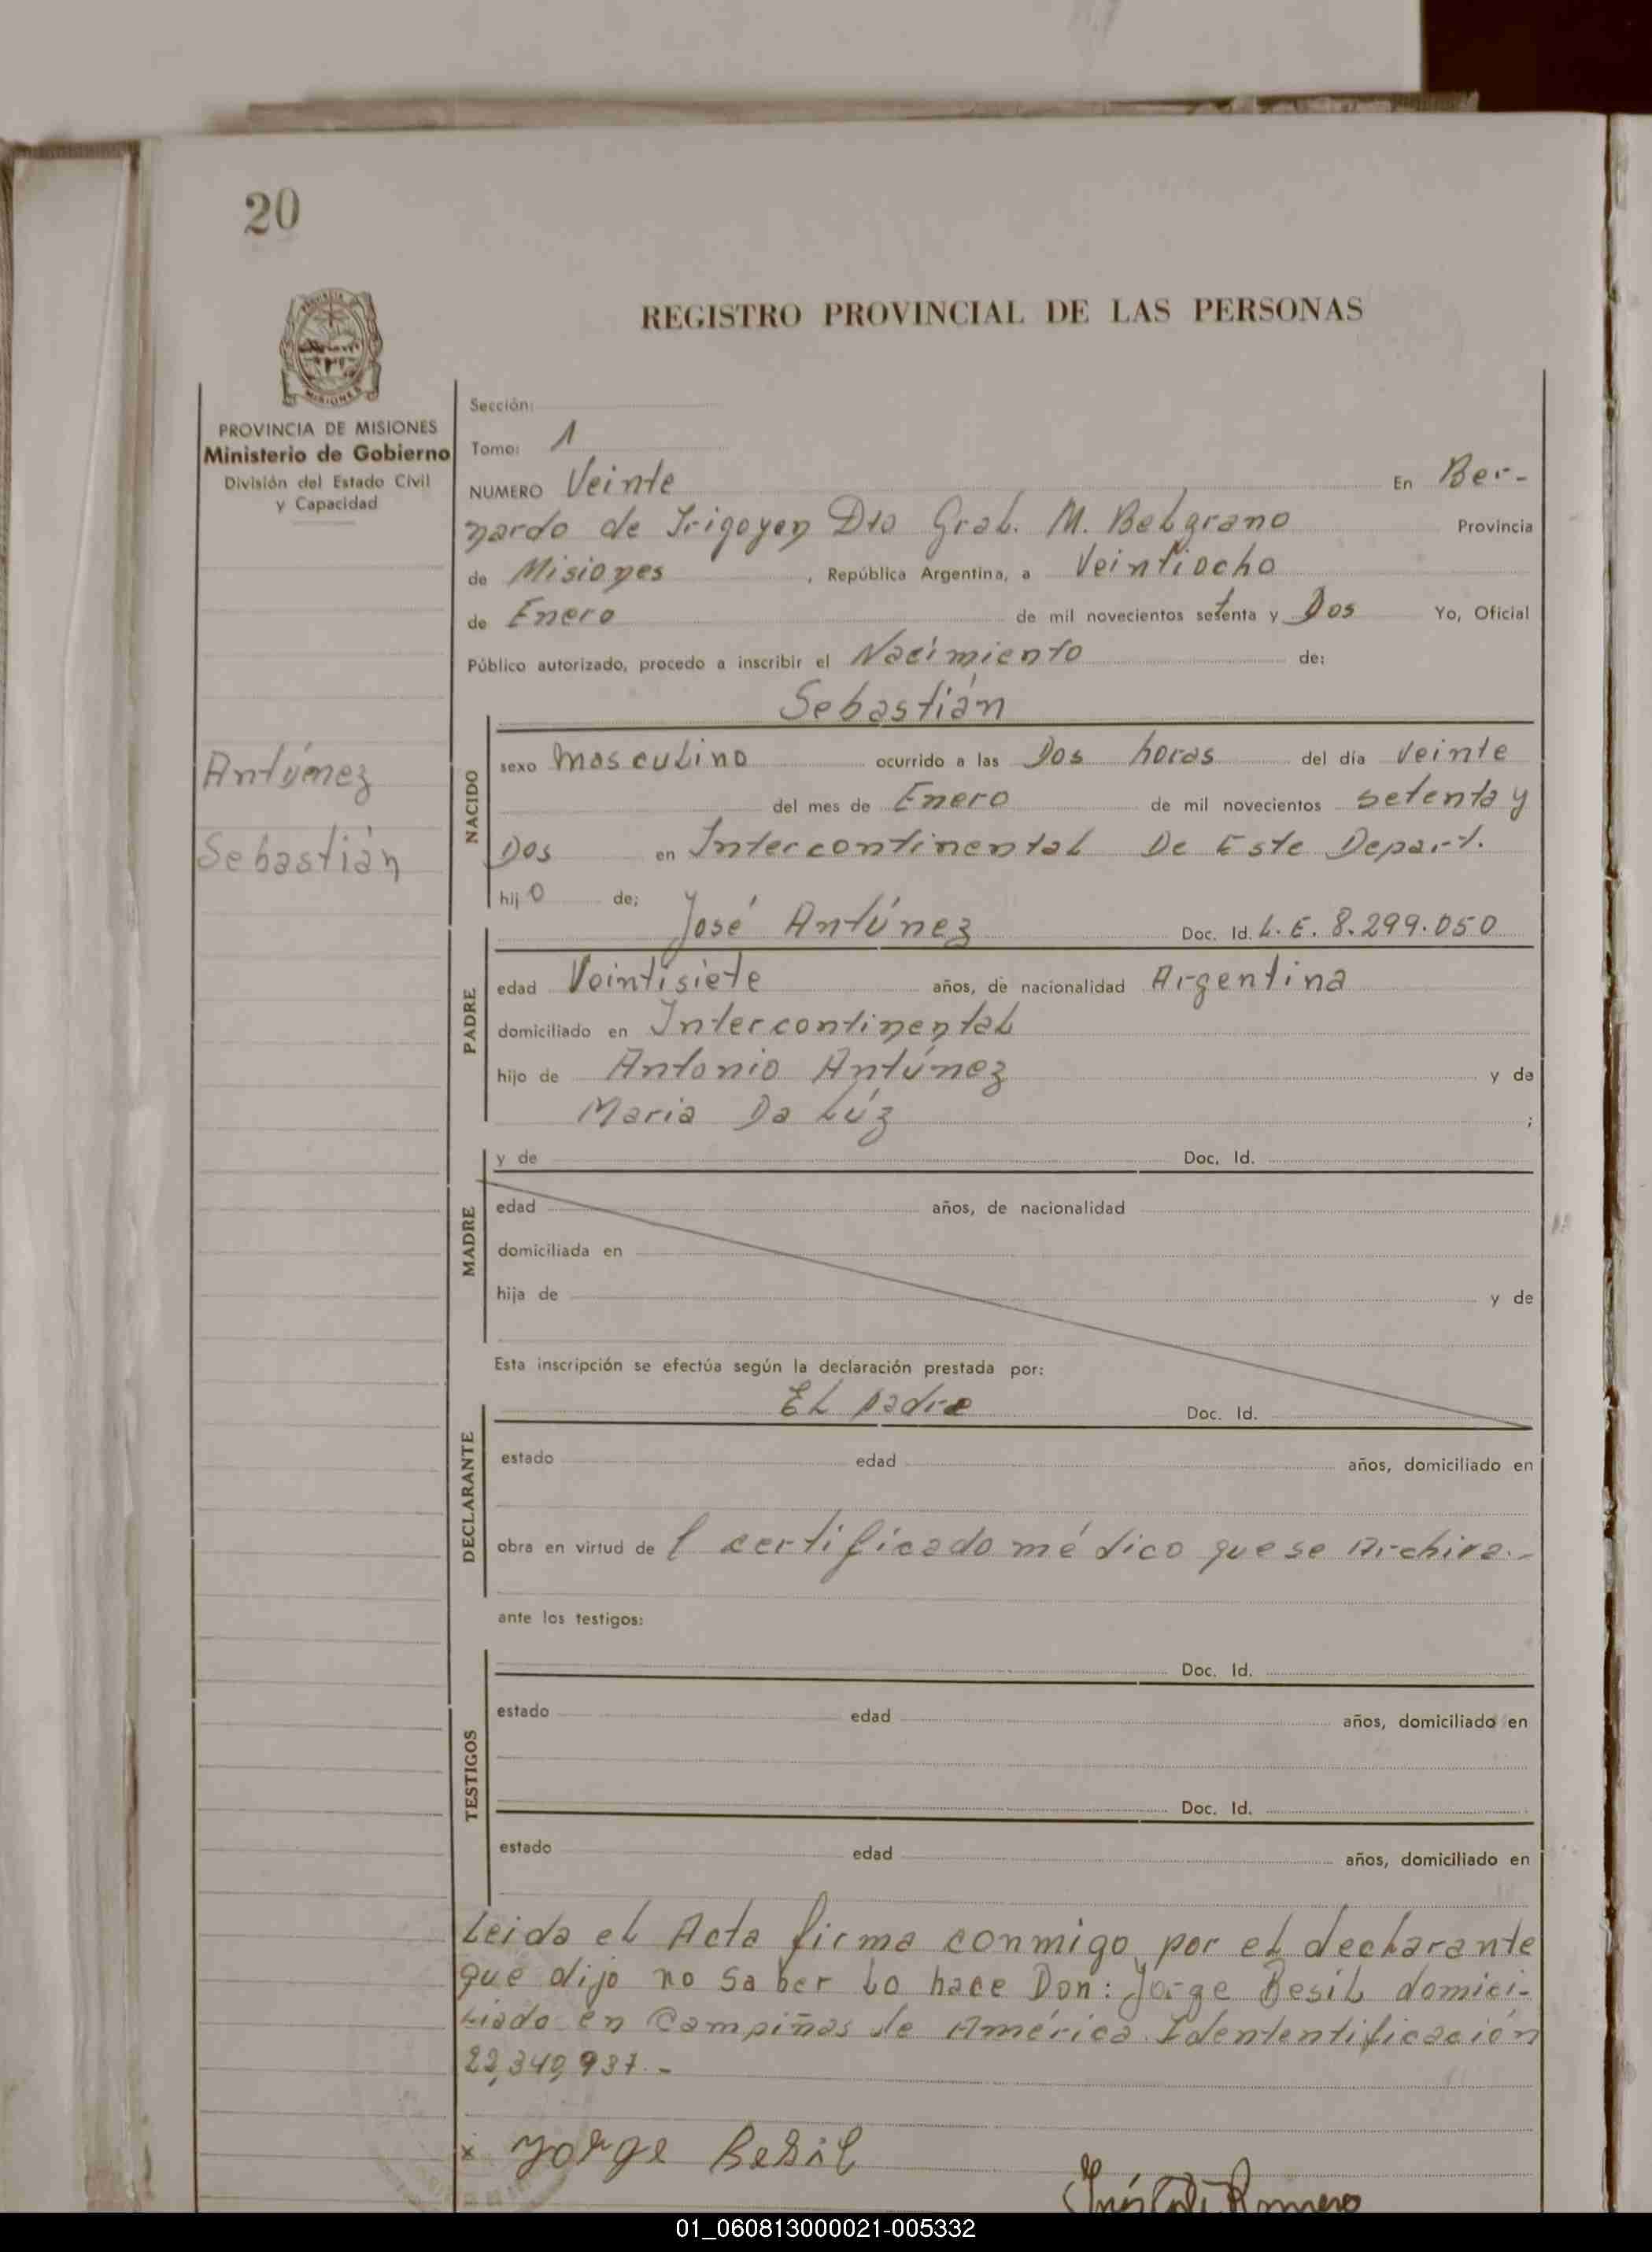 20
REGISTRO PROVINCIAL DE LAS PERSONAS
PROVINCIA DE MISIONES
Ministerio de Gobierno
División del Estado Civil
y Capacidad
Antúnez
Sebastián
Sección:
Tomo: 1
NUMERO Veinte En Ber-
nardo de Irigoyen Dto Gral. M. Belgrano Provincia
de Misiones , República Argentina, a Veintiocho
de Enero de mil novecientos setenta y Dos Yo, Oficial
Público autorizado, procedo a inscribir el Nacimiento de:
Sebastián
NACIDO
sexo masculino ocurrido a las Dos horas del día veinte
del mes de Enero de mil novecientos setenta y
Dos en Intercontinental De Este Depart.
hijo de:
José Antúnez Doc. Id. L.E. 8.299.050
PADRE
edad Veintisiete años, de nacionalidad Argentina
domiciliado en Intercontinental
hijo de Antonio Antúnez y de
Maria Da Lúz ;
y de Doc. Id.
MADRE
edad años, de nacionalidad
domiciliada en
hija de y de
Esta inscripción se efectúa según la declaración prestada por:
El padre Doc. Id.
DECLARANTE
estado edad años, domiciliado en
obra en virtud del certificado médico que se Archiva.-
ante los testigos:
Doc. Id.
TESTIGOS
estado edad años, domiciliado en
Doc. Id.
estado edad años, domiciliado en
Leida el Acta firma conmigo, por el declarante
que dijo no saber lo hace Don: Jorge Besil domici-
liado en Campiñas de América. Idententificación
22,340,937.-
x Jorge Besil
Romero
01_060813000021-005332